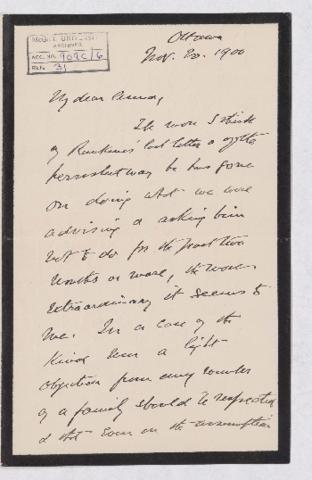 McGILL UNIVERSITY
ARCHIVES
ACC. NO. 909C/6
REF. 31
Ottawa
Nov. 20. 1900
My dear
The more I think
of Rankine's last letter & of the
persistent way he has gone
on doing what we were
advising & asking him
not to do for the past two
months or more, the more
extraordinary it seems to
me. In a case of the
kind even a light
objection from any member
of a family should be respected
& that even on the assumption